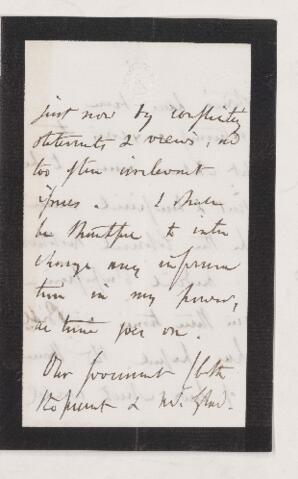 just now by conflicting
statements & views, and
too often irrelevant
issues. I shall
be thankful to inter
change any informa
tion in my power,
as time goes on.
Our Government (both
& Mr. Glad.